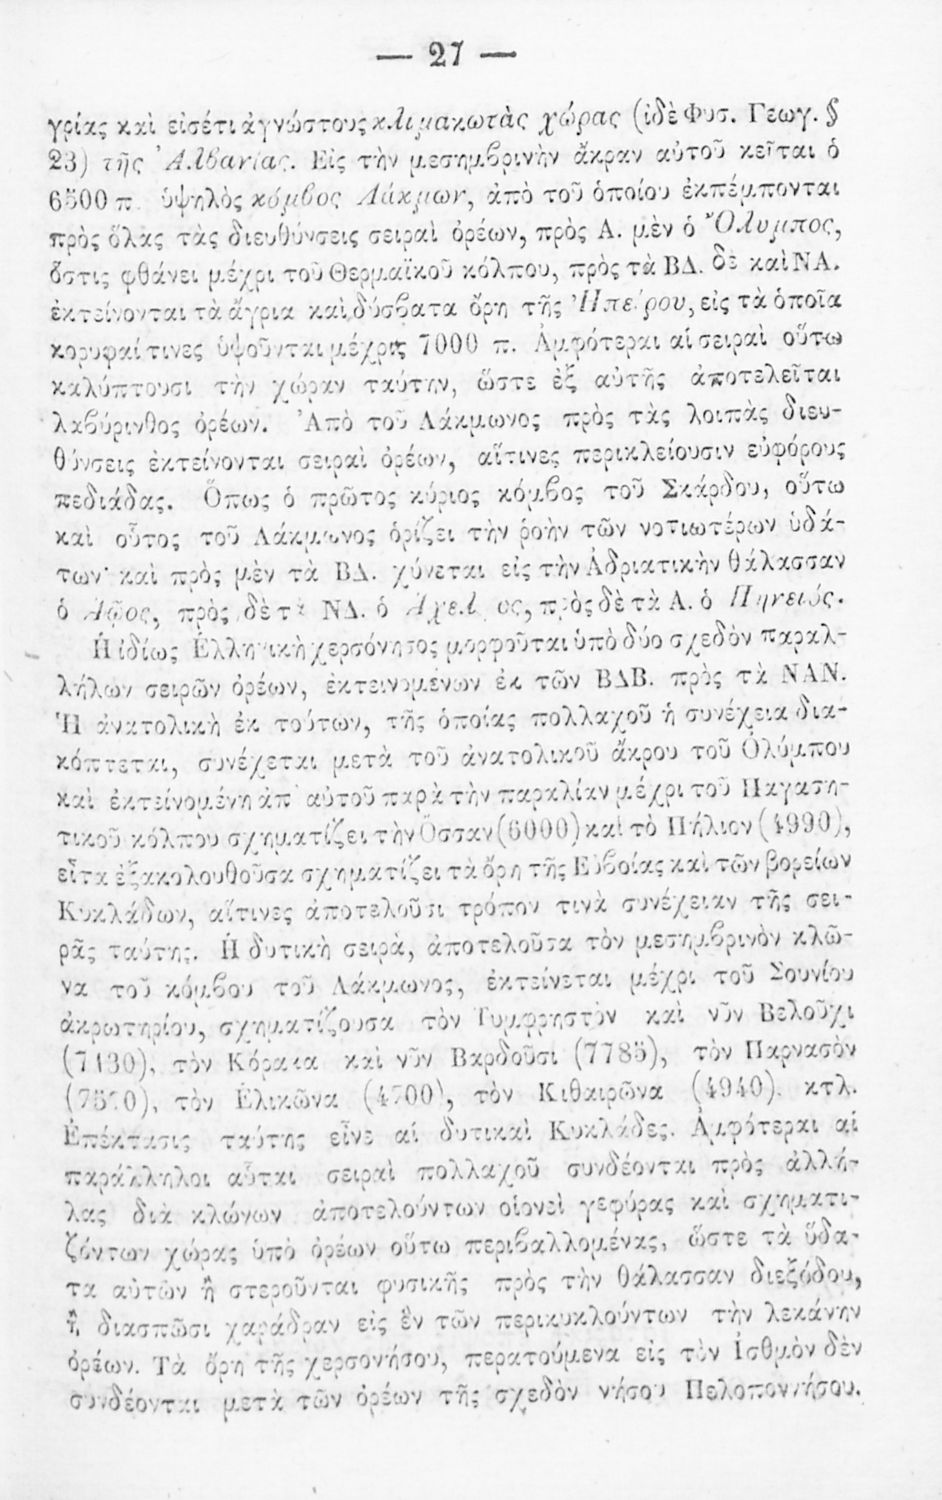 — 27 —
γρίας καὶ εἰσέτι ἀγνώστους κλιμακωτὰς χώρας (ἰδὲ Φυσ. Γεωγ. §
23) τῆς Ἀλβανίας. Εἰς τὴν μεσημβρινὴν ἄκραν αὐτοῦ κεῖται ὁ
6500 π. ὑψηλὸς κόμβος Λάκμων, ἀπὸ τοῦ ὁποίου ἐκπέμπονται
πρὸς ὅλας τὰς διευθύνσεις σειραὶ ὀρέων, πρὸς Α. μὲν ὁ Ὄλυμπος,
ὅστις φθάνει μέχρι τοῦ Θερμαϊκοῦ κόλπου, πρὸς τὰ ΒΔ. δὲ καὶ ΝΑ.
ἐκτείνονται τὰ ἄγρια καὶ δύσβατα ὄρη τῆς Ἠπείρου, εἰς τὰ ὁποῖα
κορυφαί τινες ὑψοῦνται μέχρις 7000 π. Ἀμφότεραι αἱ σειραὶ οὕτω
καλύπτουσι τὴν χώραν ταύτην, ὥστε ἐξ αὐτῆς ἀποτελεῖται
λαβύρινθος ὀρέων. Ἀπὸ τοῦ Λάκμωνος πρὸς τὰς λοιπὰς διευ-
θύνσεις ἐκτείνονται σειραὶ ὀρέων, αἵτινες περικλείουσιν εὐφόρους
πεδιάδας. Ὅπως ὁ πρῶτος κύριος κόμβος τοῦ Σκάρδου, οὕτω
καὶ οὗτος τοῦ Λάκμωνος ὁρίζει τὴν ῥοὴν τῶν νοτιωτέρων ὑδά-
των· καὶ πρὸς μὲν τὰ ΒΔ. χύνεται εἰς τὴν Ἀδριατικὴν θάλασσαν
ὁ Ἀῷος, πρὸς δὲ τὰ ΝΔ. ὁ Ἀχελῷος, πρὸς δὲ τὰ Α. ὁ Πηνειός.
Ἡ ἰδίως Ἑλληνικὴ χερσόνησος μορφοῦται ὑπὸ δύο σχεδὸν παραλ-
λήλων σειρῶν ὀρέων, ἐκτεινομένων ἐκ τῶν ΒΔΒ. πρὸς τὰ ΝΑΝ.
Ἡ ἀνατολικὴ ἐκ τούτων, τῆς ὁποίας πολλαχοῦ ἡ συνέχεια δια-
κόπτεται, συνέχεται μετὰ τοῦ ἀνατολικοῦ ἄκρου τοῦ Ὀλύμπου
καὶ ἐκτεινομένη ἀπ' αὐτοῦ παρὰ τὴν παραλίαν μέχρι τοῦ Παγαση-
τικοῦ κόλπου σχηματίζει τὴν Ὄσσαν (6000) καὶ τὸ Πήλιον (4990),
εἶτα ἐξακολουθοῦσα σχηματίζει τὰ ὄρη τῆς Εὐβοίας καὶ τῶν βορείων
Κυκλάδων, αἵτινες ἀποτελοῦσι τρόπον τινὰ συνέχειαν τῆς σει-
ρᾶς ταύτης. Ἡ δυτικὴ σειρὰ, ἀποτελοῦσα τὸν μεσημβρινὸν κλῶ-
να τοῦ κόμβου τοῦ Λάκμωνος, ἐκτείνεται μέχρι τοῦ Σουνίου
ἀκρωτηρίου, σχηματίζουσα τὸν Τυμφρηστὸν καὶ νῦν Βελοῦχι
(7130), τὸν Κόρακα καὶ νῦν Βαρδοῦσι (7785), τὸν Παρνασὸν
τὸν Ἑλικῶνα τὸν Κιθαιρῶνα (4940). κτλ.
Ἐπέκτασις ταύτης εἶνε αἱ δυτικαὶ Κυκλάδες. Ἀμφότεραι αἱ
παράλληλοι αὗται σειραὶ πολλαχοῦ συνδέονται πρὸς ἀλλή-
λας διὰ κλώνων ἀποτελούντων οἱονεὶ γεφύρας καὶ σχηματι-
ζόντων χώρας ὑπὸ ὀρέων οὕτω περιβαλλομένας, ὥστε τὰ ὕδα-
τα αὐτῶν ἢ στεροῦνται φυσικῆς πρὸς τὴν θάλασσαν διεξόδου,
ἢ διασπῶσι χαράδραν εἰς ἓν τῶν περικυκλούντων τὴν λεκάνην
ὀρέων. Τὰ ὄρη τῆς χερσονήσου, περατούμενα εἰς τὸν Ἰσθμὸν δὲν
συνδέονται μετὰ τῶν ὀρέων τῆς σχεδὸν νήσου Πελοποννήσου.